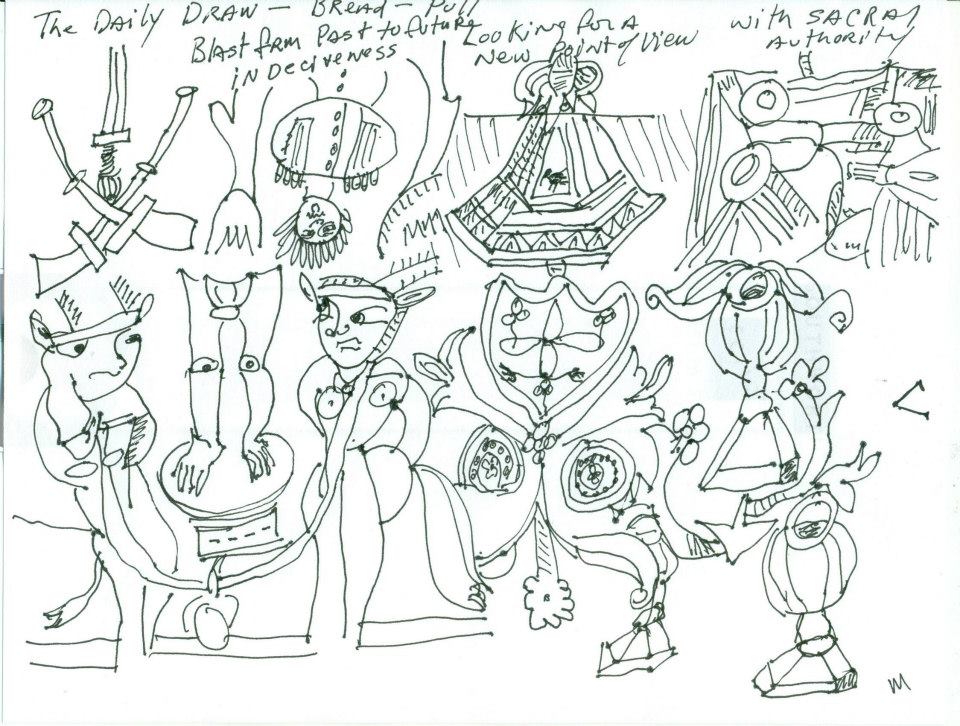 The Daily Draw — Bread — Pull
Blast from Past to future
in Deciveness
Looking for a
New Point of View
with SACRAl
Authority
M